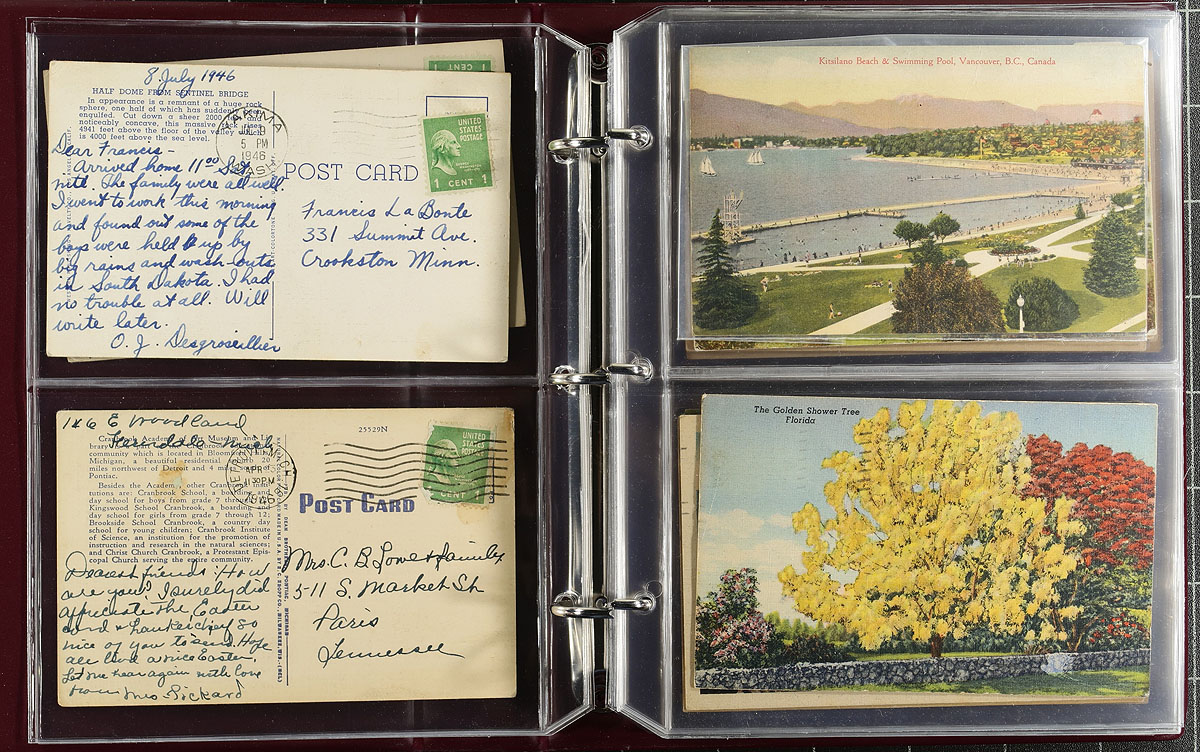 8 July 1946
HALF DOME FROM SENTINEL BRIDGE
In appearance is a remnant of a huge rock
sphere, one half of which has suddenly been
engulfed. Cut down a sheer 2000 and
noticeably concave, this massive rock rises
4941 feet above the floor of the valley which
is 4000 feet above the sea level.
YAKIMA
JUL 9
5 PM
1946
WASH.
Dear Francis -
Arrived home 11 00 Sat
nite. The family were all well.
I went to work this morning
and found out some of the
boys were held up by
big rains and wash-outs
in South Dakota. I had
no trouble at all. Will
write later.
O. J. Desgroseillier
POST CARD
1 CENT
UNITED
STATES
POSTAGE
1 CENT 1
Francis La Bonte
331 Summit Ave.
Crookston Minn.
Kitsilano Beach & Swimming Pool, Vancouver, B.C., Canada
146 E Woodland
Ferndale Mich
Cranbrook Academy of Art Museum and Li-
brary
community which is located in Bloomfield Hills,
Michigan, a beautiful residential suburb 20
miles northwest of Detroit and 4 miles south of
Pontiac.
Besides the Academy, other Cranbrook insti-
tutions are: Cranbrook School, a boarding and
day school for boys from grade 7 through 12;
Kingswood School Cranbrook, a boarding and
day school for girls from grade 7 through 12;
Brookside School Cranbrook, a country day
school for young children; Cranbrook Institute
of Science, an institution for the promotion of
instruction and research in the natural sciences;
and Christ Church Cranbrook, a Protestant Epis-
copal Church serving the entire community.
APR
11 30 PM
1946
Dearest friends: How
are you? I surely did
appreciate the Easter
card & hankerchey so
nice of you to send. Hope
all had a nice Easter,
Let me hear again with love
from Mrs Pickard
25529N
POST CARD
UNITED
STATES
POSTAGE
CENT 1
Mrs. C. B. Lowe & family
511 S. Market St
Paris
Tennessee
The Golden Shower Tree
Florida